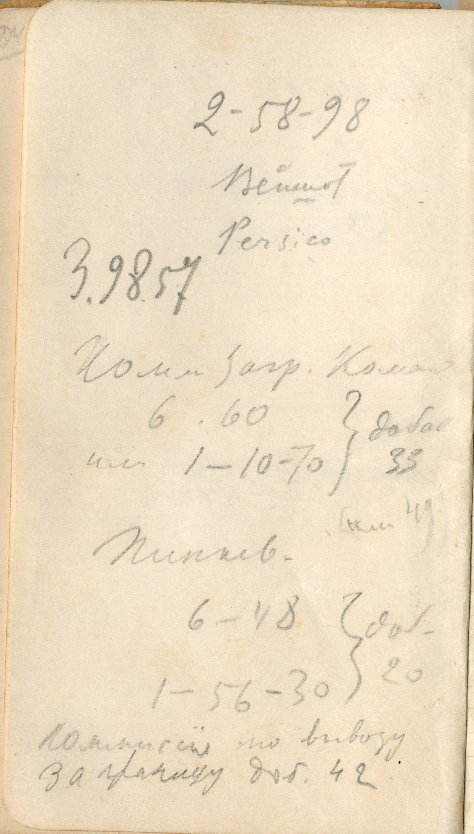 2-58-98
Persico
3.98.57
Комм Загр. Команд
6.60 } добав
или 1-10-70 } 33
(или 49)
6-48 } доб-
1-56-30 } 20
Комиссия по вывозу
За границу доб. 42